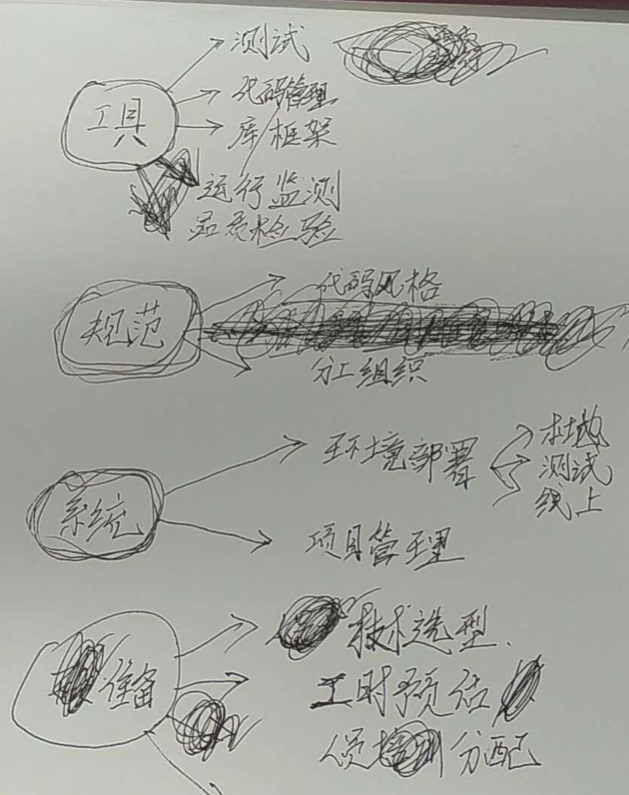 工具
测试
代码管理
库/框架
运行监测
品质检验
规范
代码风格
分工组织
系统
环境部署
本地
测试
线上
项目管理
准备
技术选型
工时预估
人员 分配